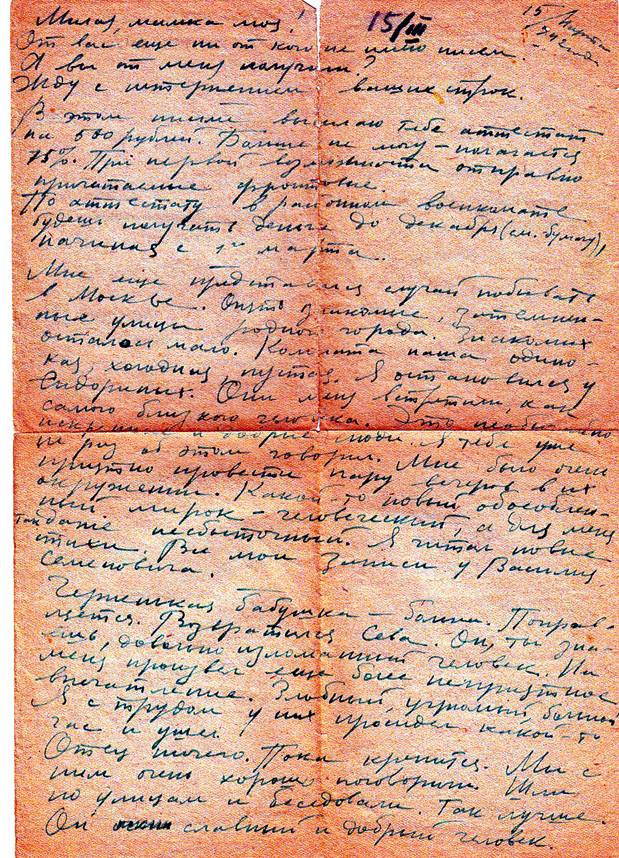 Милая, мамка моя!
15/III
15/Марта
От вас еще ни от кого не имею писем.
А вы от меня получали?
Жду с нетерпением ваших строк.
В этом письме высылаю тебе аттестат
на 500 рублей. Больше не могу – полагается
75%. При первой возможности отправлю
причитаемые фронтовые.
По аттестату в районном военкомате
будешь получать деньги до декабря (см. бумагу),
начиная с 1го марта.
Мне еще представился случай побывать
в Москве. Опять знакомые, затемнен-
ные улицы родного города. Знакомых
осталось мало. Комната наша одино-
кая, холодная, пустая. Я остановился у
Сидориных. Они меня встретили, как
самого близкого человека. Это необычно
искренние и добрые люди. Я тебе уже
не раз об этом говорил. Мне было очень
приятно провести пару вечеров в их
окружении. Какой-то новый обособлен-
ный мирок – человеческий, а для меня
даже несбыточный. Я читал новые
стихи. Все мои записи у Василия
Семеновича.
бабушка – больна. Поправ-
ляется. Возвратился Сева. Он, ты зна-
ешь, довольно изломанный человек. На
меня произвел еще более неприятное
впечатление. Злобный, угрюмый, больной
Я с трудом у них просидел какой-то
час и ушел.
Отец ничего. Пока крепится. Мы с
ним очень хорошо поговорили. Шли
по улицам и беседовали. Так лучше.
Он славный и добрый человек.